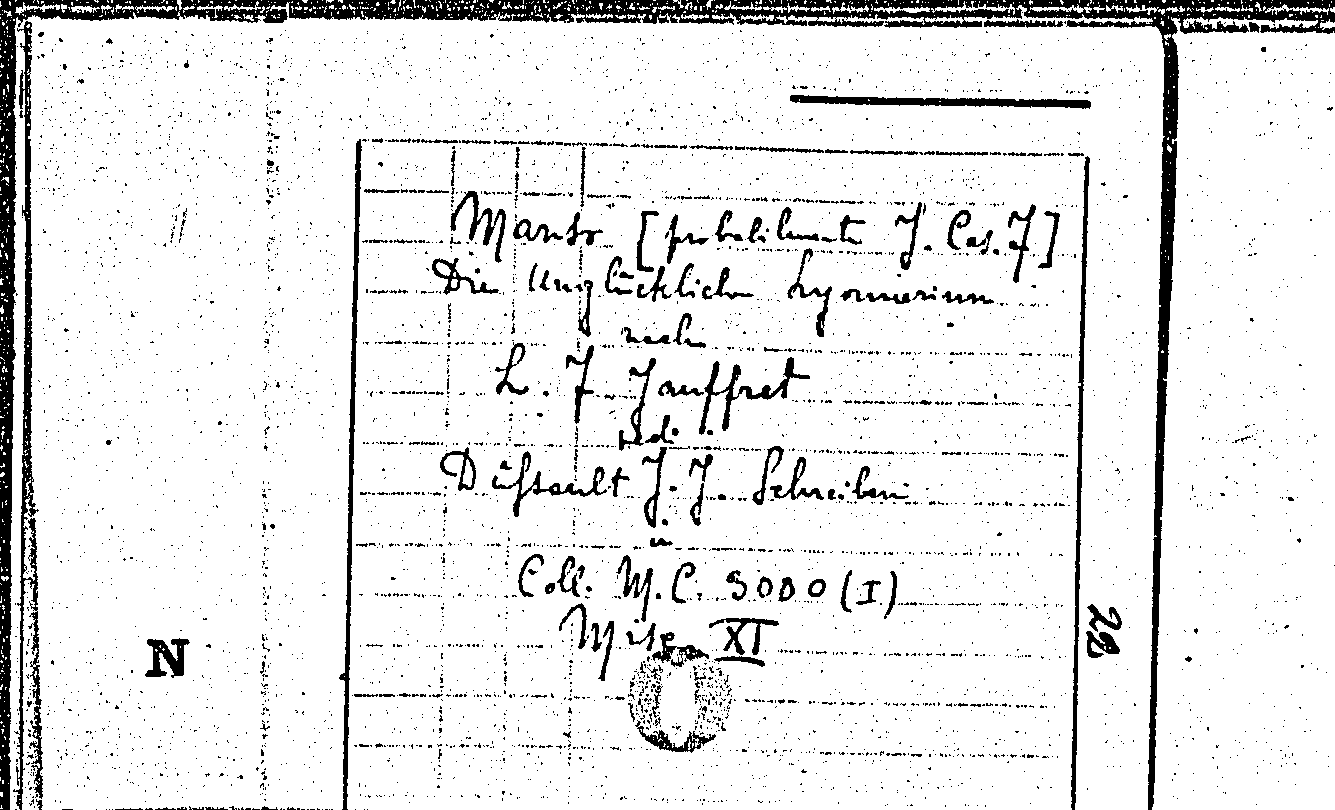 Manso [probabilmente J. Cas. F]
Die Unglücklichen Lyonnerinn
nach
L. F. Jauffret
ved.
Düssault J. J. Schreiben
in
Coll. M. C. 3000 (I)
Misc. XI
22
N